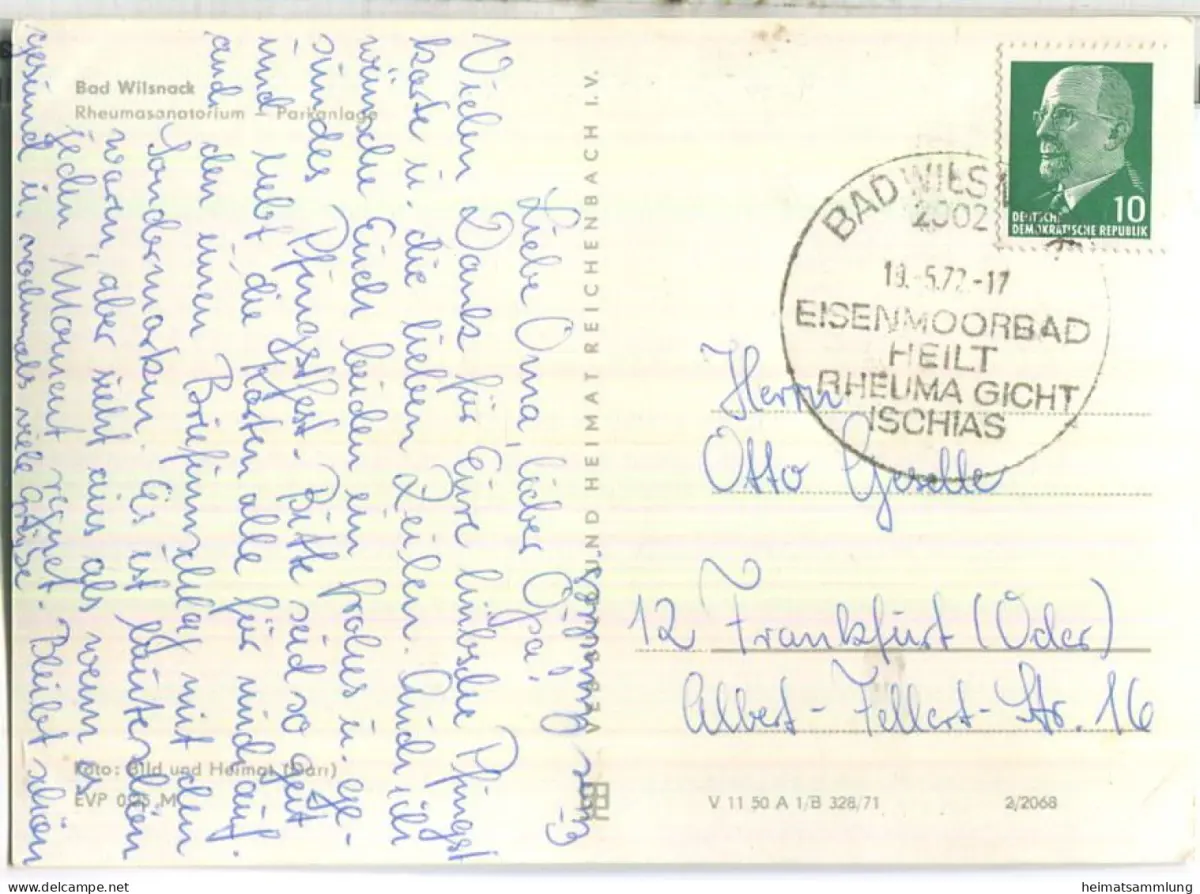 Bad Wilsnack
Rheumasanatorium – Parkanlage
Liebe Oma, lieber Opa!
Vielen Dank für Eure hübsche Pfingst-
karte u. die lieben Zeilen. Auch ich
wünsche Euch beiden ein frohes u. ge-
sundes Pfingstfest. Bitte seid so gut
und hebt die Karten alle für mich auf.
und den einen Briefumschlag mit den
Sondermarken. Es ist heute schön
warm, aber sieht aus als wenn es
jeden Moment regnet. Bleibt schön
gesund u. nochmals viele Grüße
Foto: Bild und Heimat (Darr)
EVP 0,25 M
VEB BILD UND HEIMAT REICHENBACH I. V.
BAD WILS
2002
19.-5.72.-17
EISENMOORBAD
HEILT
RHEUMA GICHT
ISCHIAS
10
DEUTSCHE
DEMOKRATISCHE REPUBLIK
Herrn
Otto Geselle
12 Frankfurt (Oder)
Albert-Fellert-Str. 16
V 11 50 A 1/B 328/71
2/2068
heimatsammlung